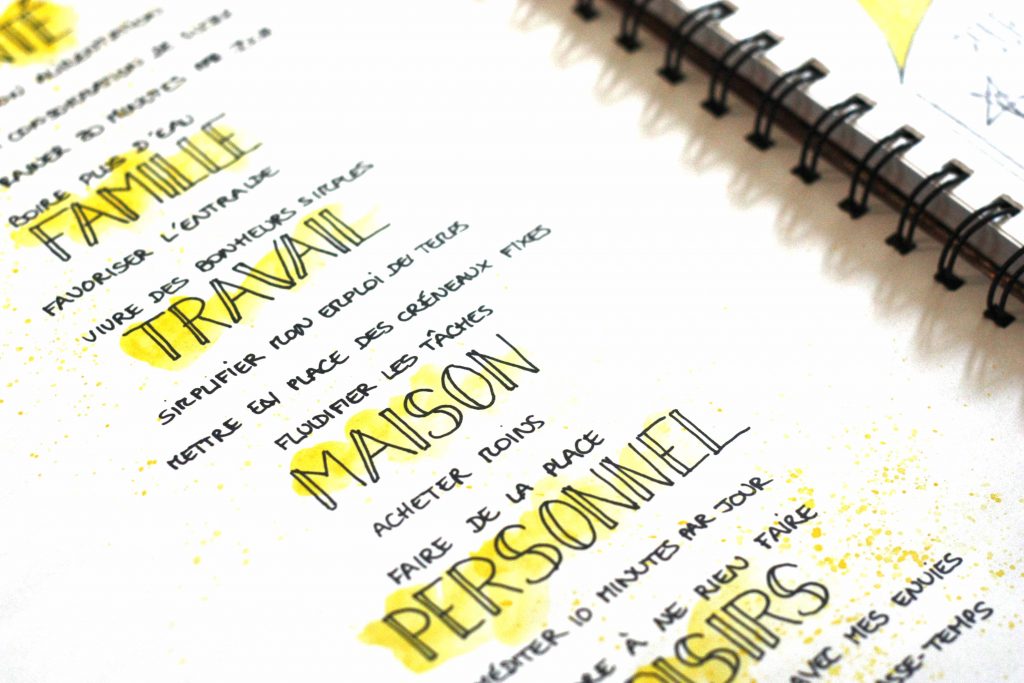 NTÉ
ALIMENTATION
CONSOMMATION DE
20 MINUTES PAR
BOIRE PLUS D'EAU
FAMILLE
FAVORISER L'ENTRAIDE
VIVRE DES BONHEURS SIMPLES
TRAVAIL
SIMPLIFIER MON EMPLOI DEI TEMPS
METTRE EN PLACE DES CRÉNEAUX FIXES
FLUIDIFIER LES TÂCHES
MAISON
ACHETER MOINS
FAIRE DE LA PLACE
PERSONNEL
MÉDITER 10 MINUTES PAR JOUR
RE À NE RIEN FAIRE
OISIRS
AVEC MES ENVIES
ASSE-TEMPS